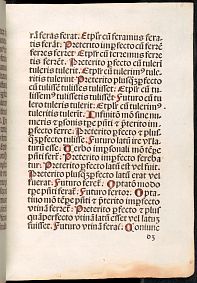 rā feras ferat. Et plr̄ cū feramus fera-
tis ferāt. Preterito īpfecto cū ferrē
ferres ferret Et plr̄ cū ferremus ferre
tis ferrēt. Preterito pfecto cū tuleri
tuleris tulerit. Et plr̄ cū tulerimꝰ tule-
ritis tulerint. Preterito plusq̄ꝫpfecto
cū tulissē tulisses tulisset. Et plr̄ cū tu
lissemꝰ tulissetis tulissēt Futuro cū tu
lero tuleris tulerit. Et plr̄ cū tulerimꝰ
tuleritis tulerint. Infinito mō sine nu
meris ⁊ psonis tpe pn̄ti ⁊ p̄terito im-
pfecto ferre. Preterito pfecto ⁊ plus
q̄ꝫpfecto tulisse. Futuro latū ire vl latu
rū esse. Verbo impsonali mō tpe
pn̄ti fertur. Preterito impfecto fereba
tur. Preterito pfecto latū est vel fuit.
Preterito plusq̄ꝫpfecto latū erat vel
fuerat. Futuro feret̄. Optatō modo
tpe pn̄ti ferat̄. Futuro fertor. Opta-
tiuo mō tpe pn̄ti ⁊ p̄terito impfecto
vtinā ferret̄. Preterito pfecto ⁊ plus
quāperfecto vtinā latū esset vel latuꝫ
fuisset. Futuro vtinā ferat̄. Coniunc